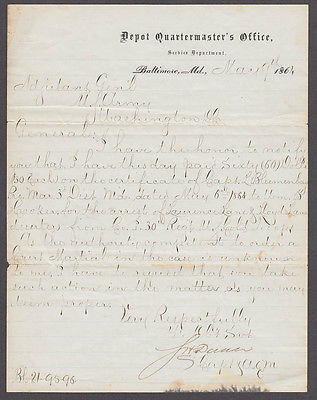 Depot Quartermaster's Office,
Service Department,
Baltimore, Md., May 7th 1864
Adjutant Genl
U.S. Army
Washington D.C.
General
I have the honor to notify
you that I have this day paid Sixty (60) Dolls
30 Each on the certificate of Capt L. Blumenberg
Pro Mar 3d Dist Md. Dated May 6th 1864 to Wm.
for the arrest of Lawrence and Floyd
from Co. 30" Regt
As the authority competent to order a
Court Martial in the case is unknown
to me, I have to request that you take
such action in the matter as you may
deem proper.
Very Respectfully
Yr Obt Svt
Capt & AQM